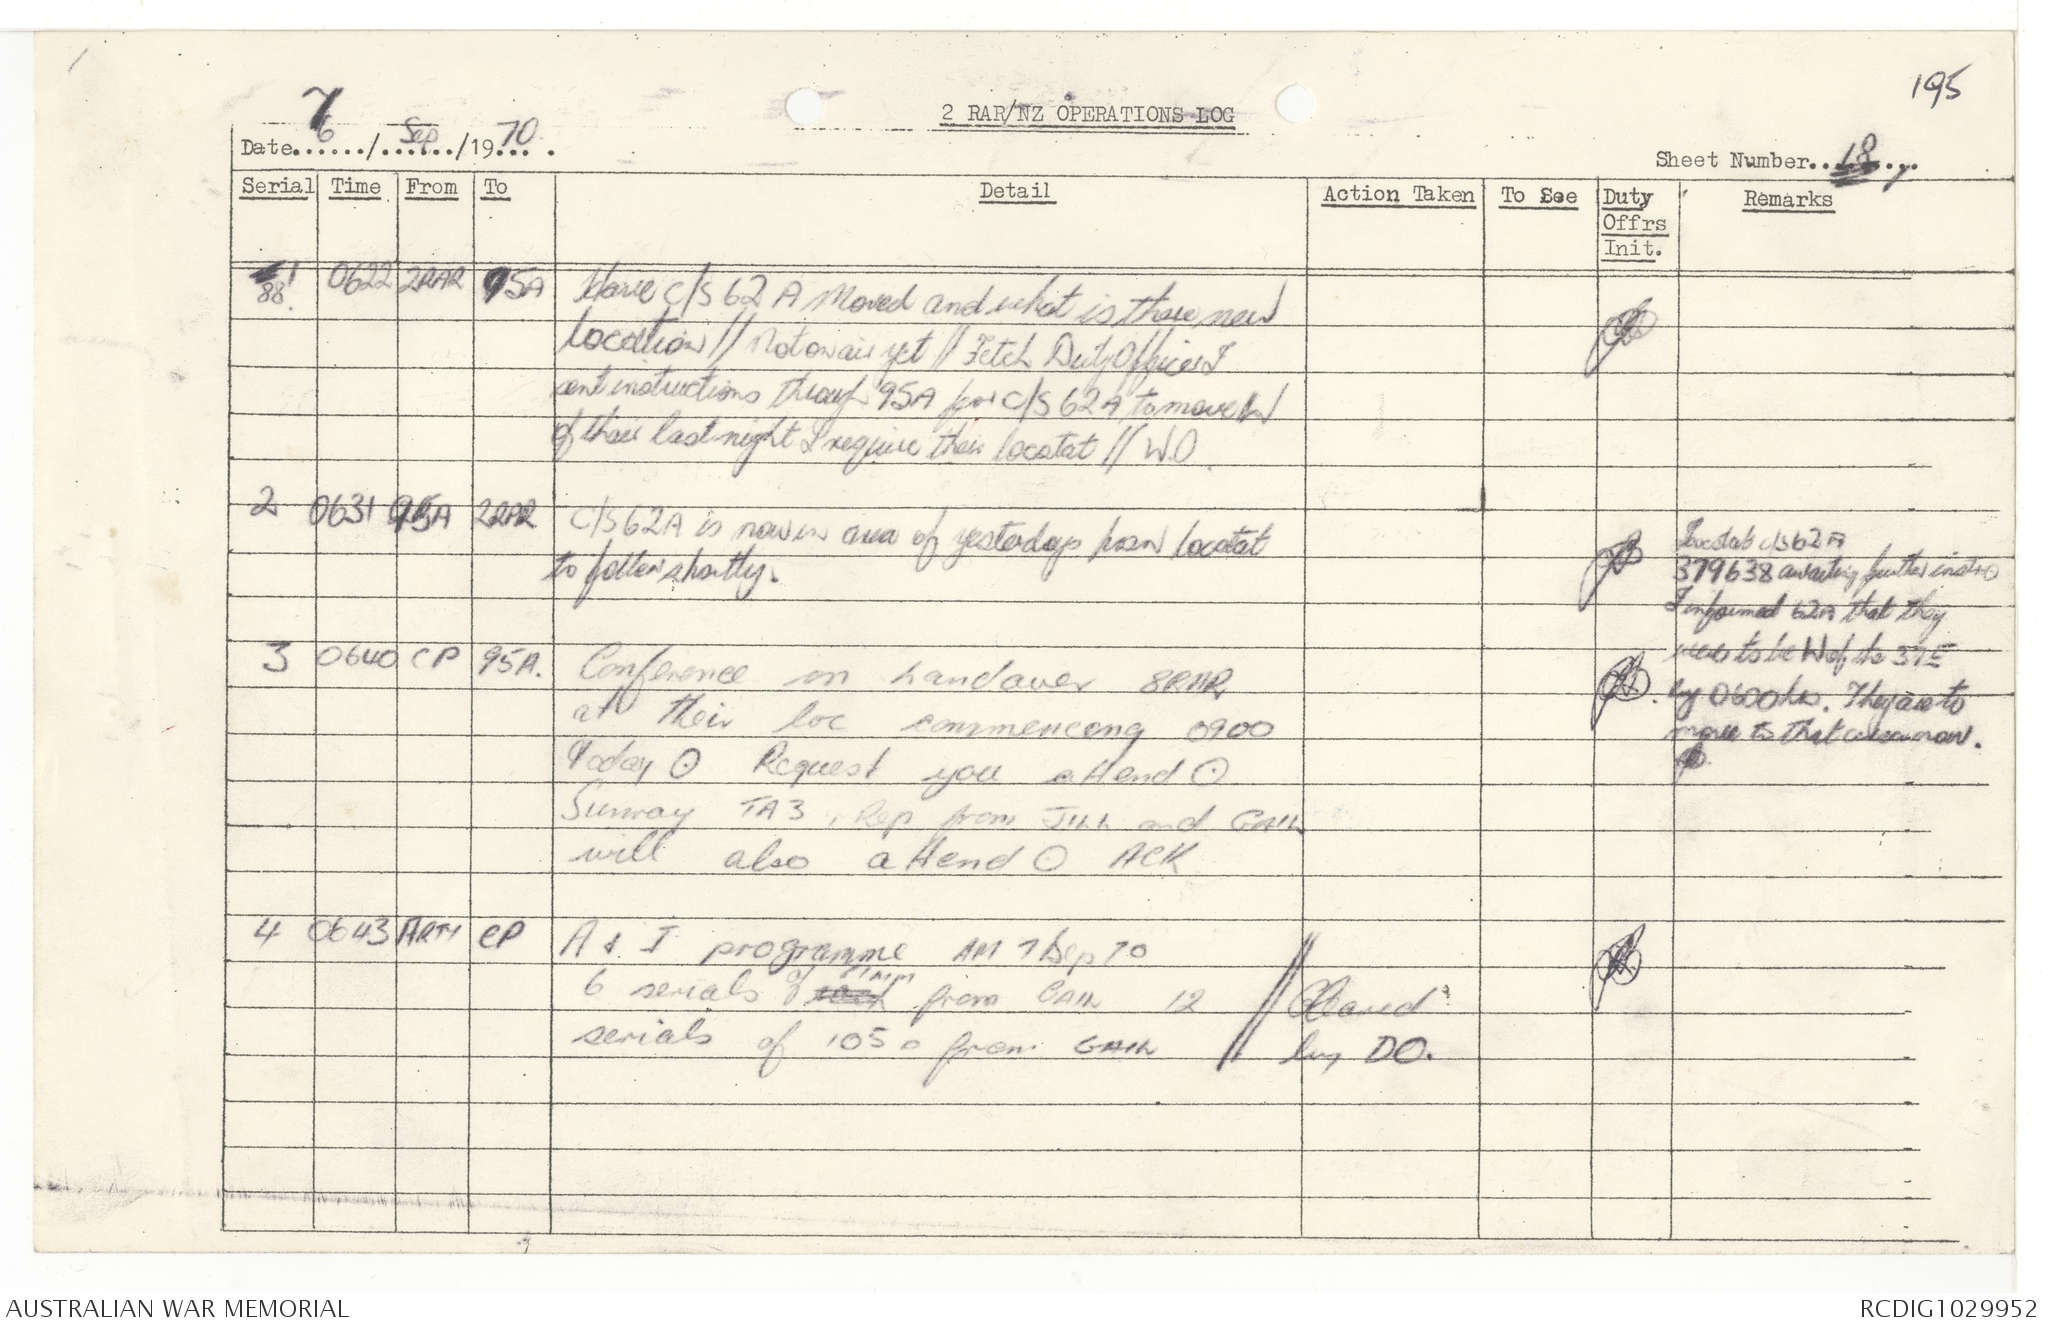 195
2 RAR/NZ OPERATIONS LOG
Date 7 6 / Sep /1970.
Sheet Number 18
Serial Time From To Detail Action Taken To See Duty Offrs Init. Remarks
1 88. 0622 2RAR 95A Have C/S 62 A Moved and what is there new
location // Not on air yet // Fetch Duty Officer I
sent instructions through 95A for C/S 62A to move W
of their last night I require their locstat // W.O.
2 0631 95A 2RAR C/S 62A is now in area of yesterdays locstat
to follow shortly.
Locstat c/s 62A
379638 awaiting further
I informed 62A that they
were to be W of the 37 E
by 0600 hrs. They are to
move to that area now.
3 0640 CP 95A. Conference on handover 8RAR
at their loc commencong 0900
Today ⊙ Request you attend ⊙
Sunray TA3, Rep from JILL and GAIL
will also attend ⊙ ACK
4 0643 ARTY CP A & I programme AM 7 Sep 70
6 serials of from GAIL 12 // Cleared
serials of 105 from GAIL // by DO.
AUSTRALIAN WAR MEMORIAL
RCDIG1029952